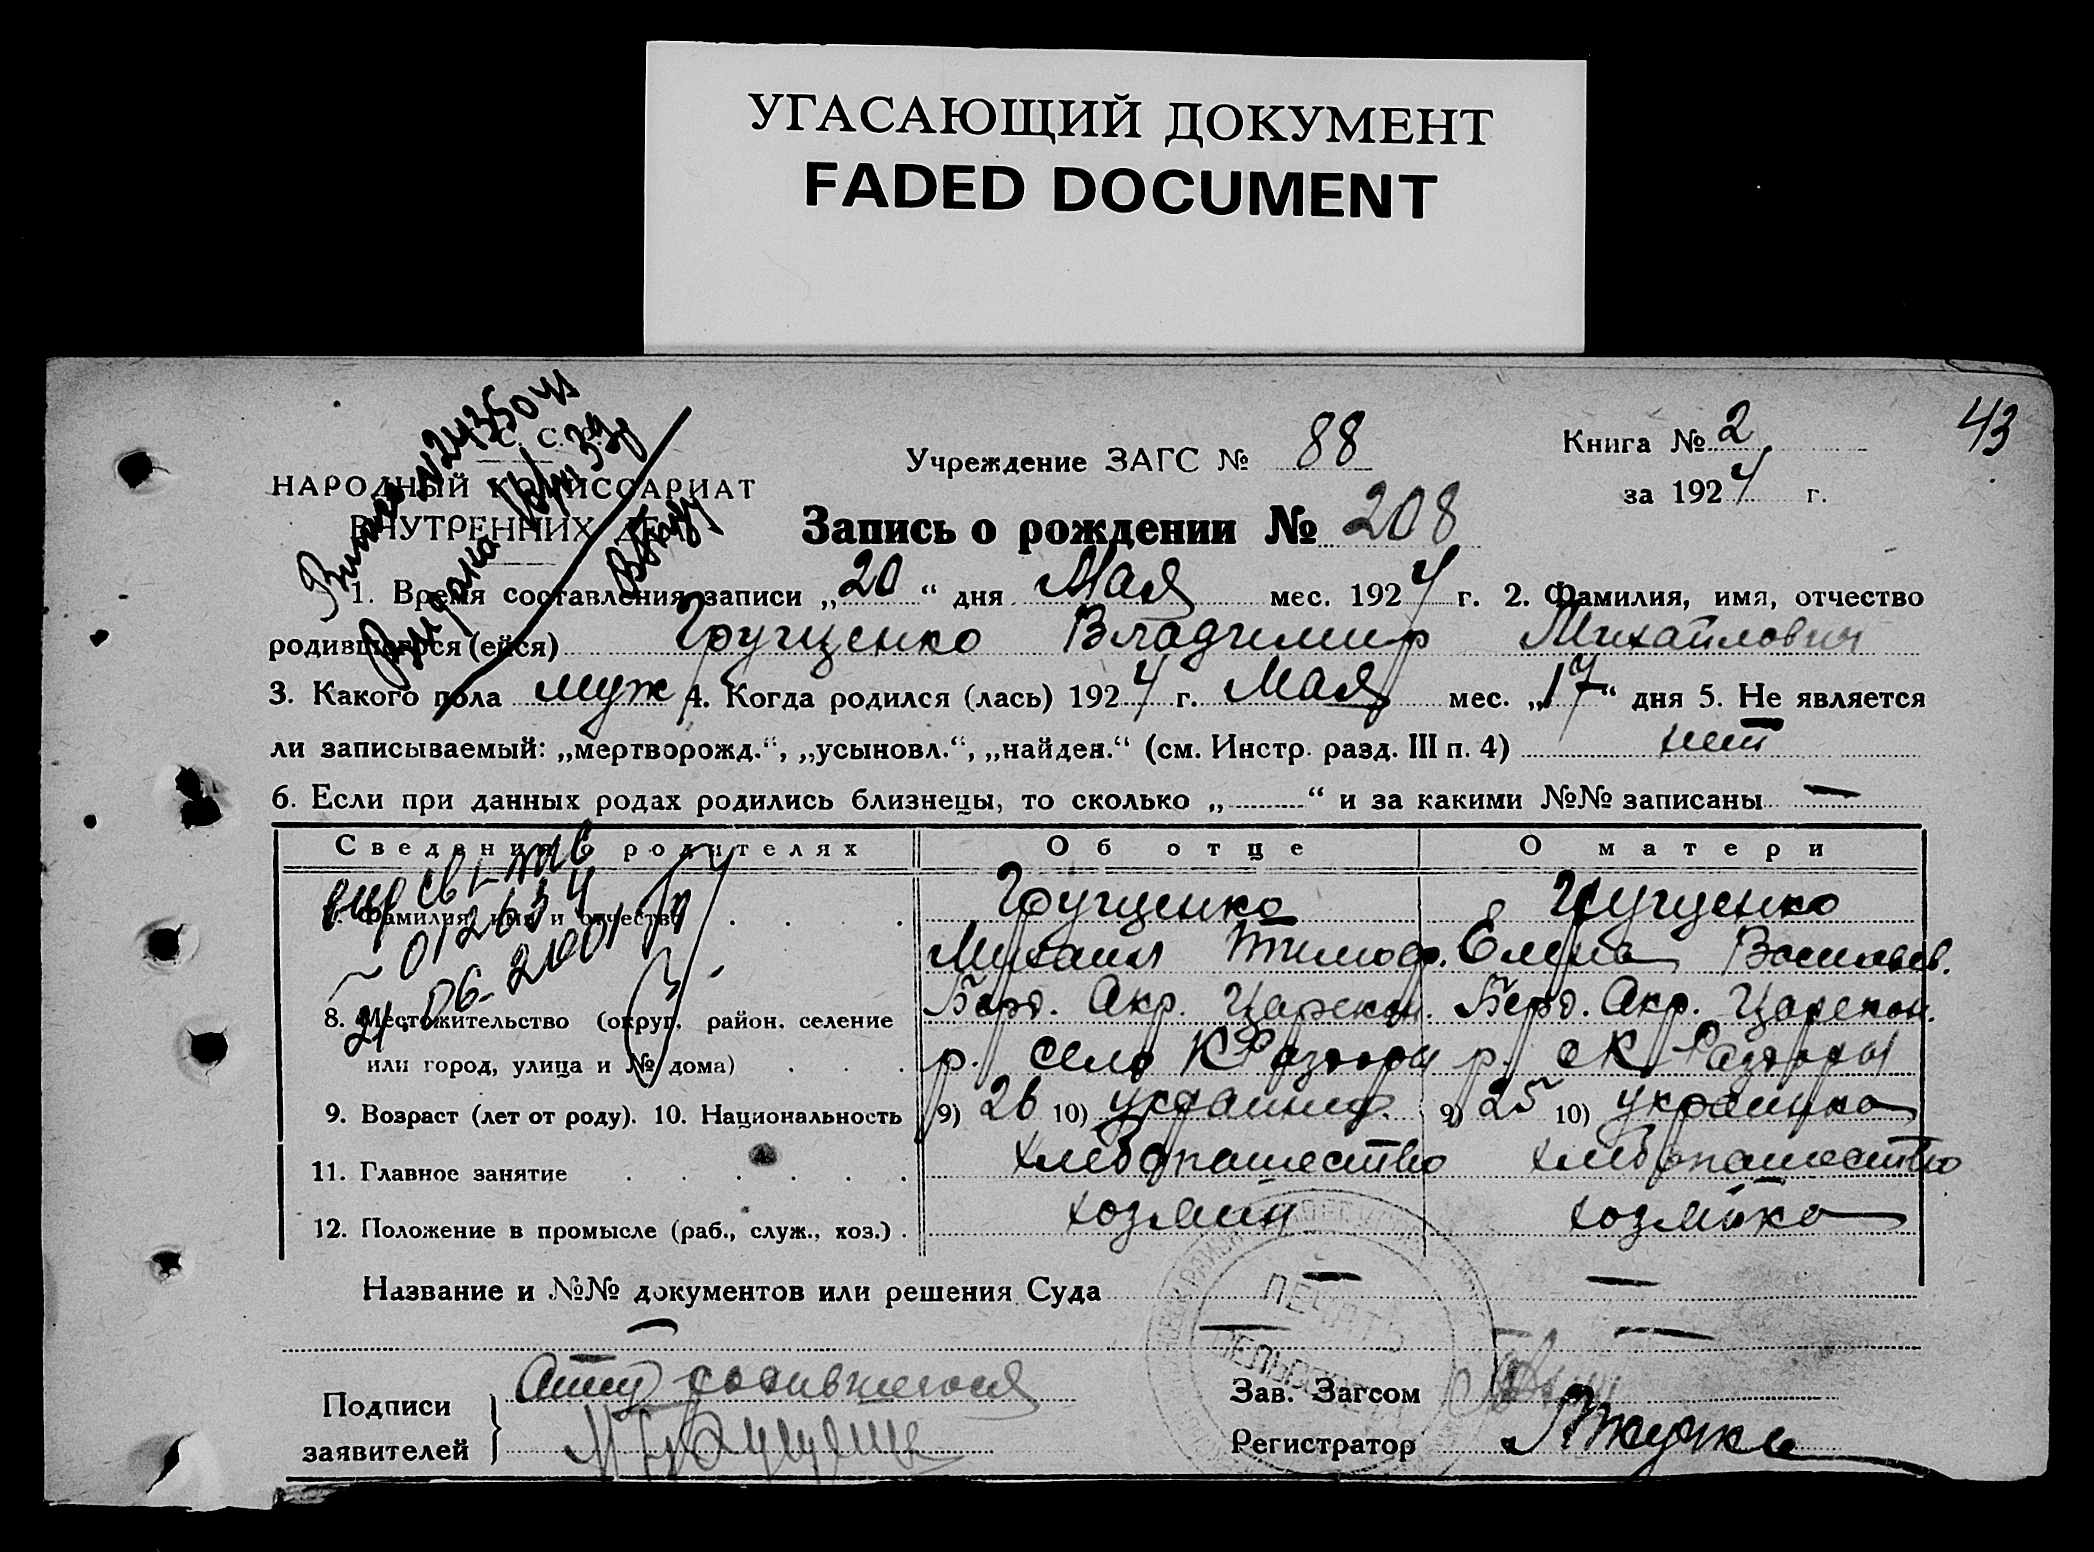 УГАСАЮЩИЙ ДОКУМЕНТ
FADED DOCUMENT
43
С. С.
НАРОДНЫЙ КОМИССАРИАТ
ВНУТРЕННИХ ДЕЛ
Учреждение ЗАГС № 88
Книга № 2
за 1924 г.
Запись о рождении № 208
1. Время составления записи „20“ дня Мая мес. 1924 г. 2. Фамилия, имя, отчество
родившегося (ейся) Грущенко Владимир Михайлович
3. Какого пола муж 4. Когда родился (лась) 1924 г. Мая мес. „17“ дня 5. Не является
ли записываемый: „мертворожд.“, „усыновл.“, „найден.“ (см. Инстр. разд. III п. 4) нет
6. Если при данных родах родились близнецы, то сколько „ “ и за какими №№ записаны —
Сведения о родителях Об отце О матери
7. Фамилия, имя и отчество Грущенко Грущенко
Михаил Тимоф. Елена Васильев.
21.06.2001
8. Местожительство (округ, район, селение Берд. Окр. Царекон. Берд. Окр. Царекон.
или город, улица и № дома) р. село К Разоры р. с К Разоры
9. Возраст (лет от роду). 10. Национальность 9) 26 10) украинец 9) 25 10) украинка
11. Главное занятие хлебопашество хлебопашество
12. Положение в промысле (раб., служ., хоз.) хозяин хозяйка
Название и №№ документов или решения Суда — —
— — —
ПЕЧАТЬ
СЕЛЬСОВЕТА
Подписи
заявителей
Отец родившегося
Зав. Загсом
Регистратор